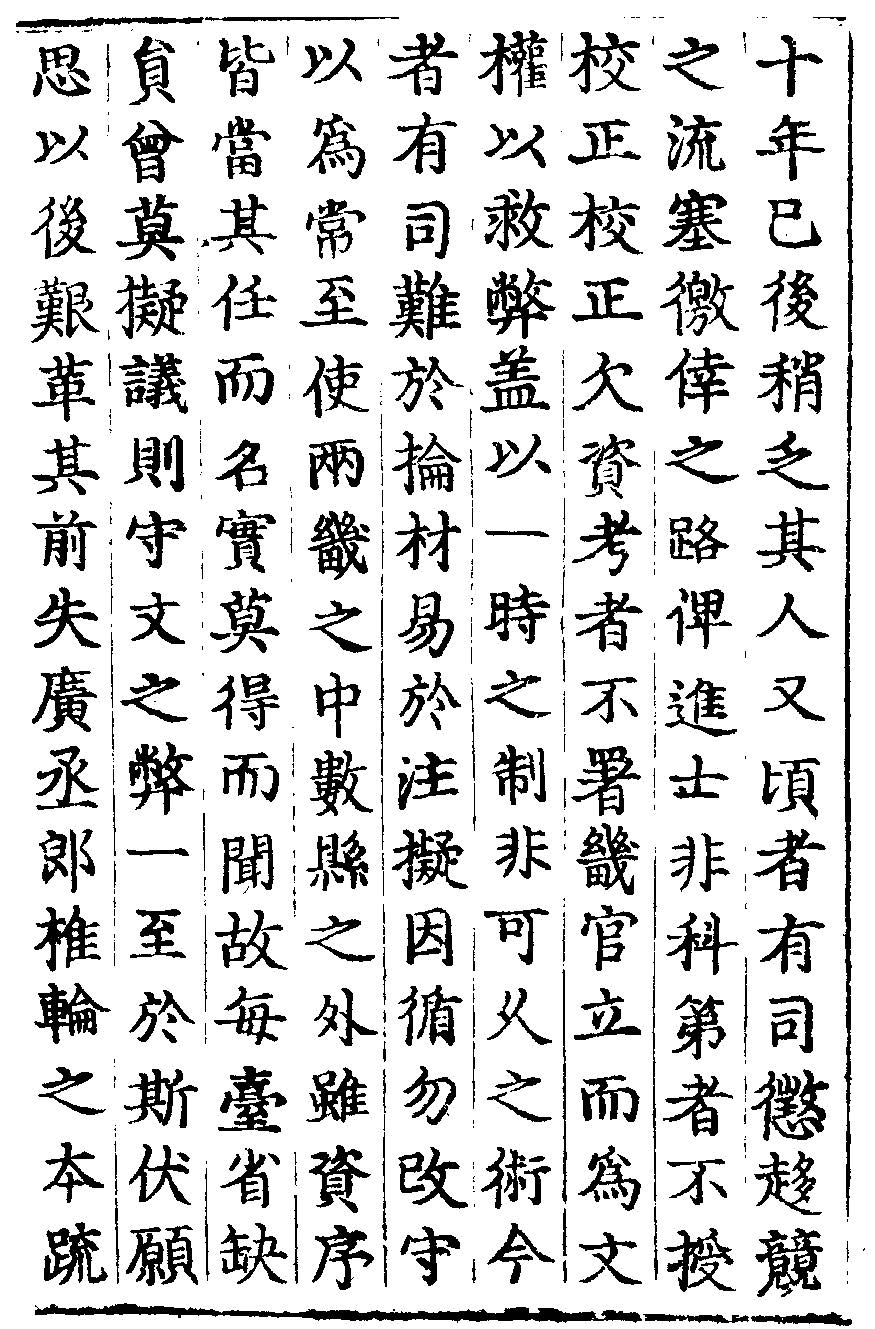 十年已後稍乏其人又頃者有司懲趍競
之流塞徼倖之路俾進士非科第者不授
校正校正欠資考者不署畿官立而爲文
權以救弊盖以一時之制非可乆之術今
者有司難於掄材易於注擬因循勿改守
以爲常至使兩畿之中數縣之外雖資序
皆當其任而名實莫得而聞故每臺省缺
負曾莫擬議則守文之弊一至於斯伏願
思以後艱革其前失廣丞郎椎輪之夲䟽